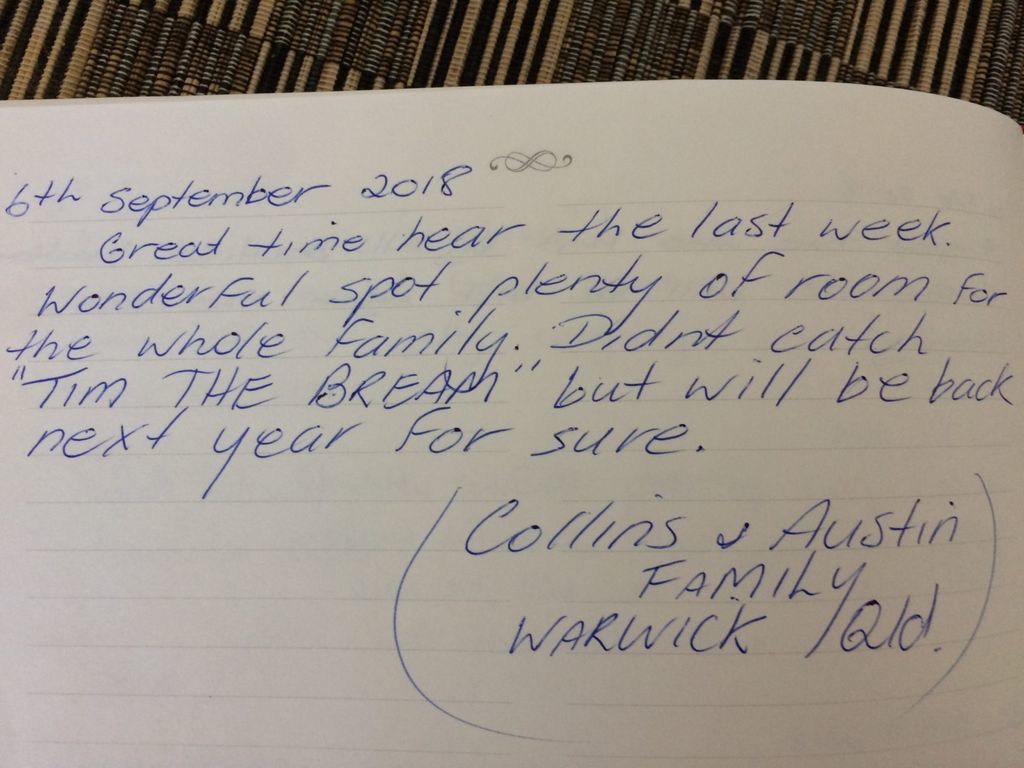 6th September 2018
Great time hear the last week.
Wonderful spot plenty of room for
the whole family. Didnt catch
"Tim THE BREAM" but will be back
next year for sure.
Collins & Austin
FAMILY
WARWICK /Qld.